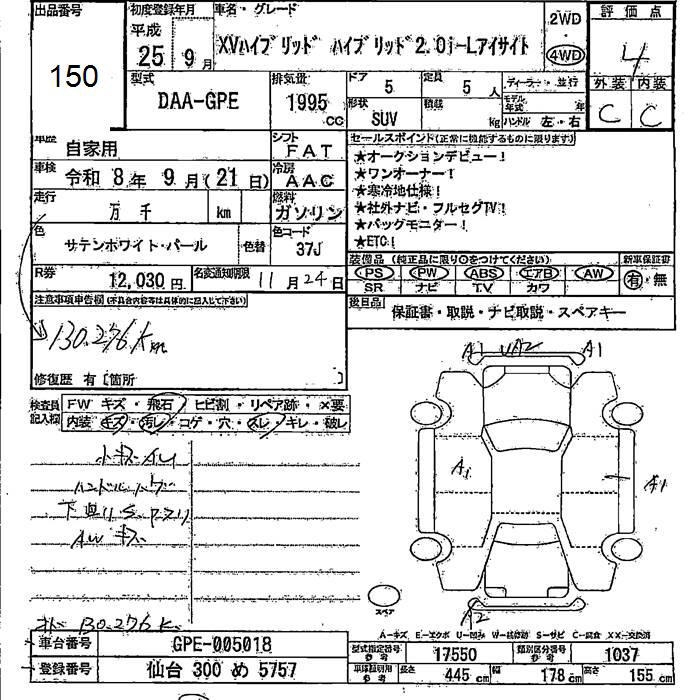 出品番号
150
初度登録年月
平成
25年9月
車名・グレード
XVハイブリッド ハイブリッド2.0i-Lアイサイト
2WD
4WD
評価点
4
外装 内装
C C
型式
DAA-GPE
排気量
1995 cc
ドア
5
定員
5 人
ディーラー・並行
形状
SUV
積載
kg
モデル年式 年
ハンドル 左・右
車歴
自家用
シフト
FAT
車検
令和 8年 9月(21日)
冷房
AAC
走行
万 千 km
燃料
ガソリン
色
サテンホワイト・パール
色替
色コード
37J
R券
12,030円
名変通知期限
11月24日
セールスポイント(正常に機能するものに限ります)
★オークションデビュー!
★ワンオーナー!
★寒冷地仕様!
★社外ナビ・フルセグTV!
★バックモニター!
★ETC!
装備品 (純正品に限り○をつけてください)
PS PW ABS エアB AW
SR ナビ T.V カワ
新車保証書
有・無
後日品
保証書・取説・ナビ取説・スペアキー
注意事項申告欄(不具合内容等は具体的に記入して下さい)
130.276km
修復歴 有〔箇所 〕
検査員記入欄
FW キズ・飛石・ヒビ割・リペア跡・×要
内装 キズ・汚レ・コゲ・穴・スレ・キレ・破レ
A1 UA2 A1
A1
A1
A2
スペア
AWキズ
130.276K
A-キズ E-エクボ U-凹み W-板修跡 S-サビ C-腐食 XX-交換済
車台番号
GPE-005018
登録番号
仙台 300 め 5757
型式指定番号 参考
17550
類別区分番号 参考
1037
車庫証明用 参考
長さ 445 cm 幅 178 cm 高さ 155 cm